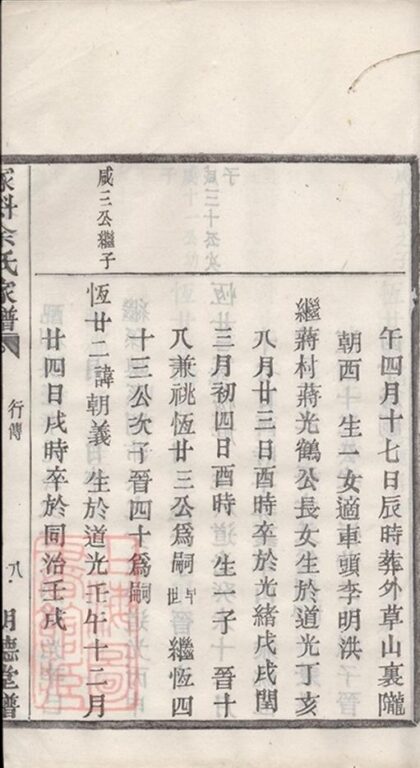 午四月十七日辰時葬外草山裏隴
朝西 生一女適車頭李明洪
繼蔣村蔣光鶴公長女生於道光丁亥
八月廿三日酉時卒於光緒戊戌閏
三月初四日酉時 生一子 晉十
八兼祧恆廿三公爲嗣早世 繼恆四
十三公次子晉四十爲嗣
咸三公繼子
恆廿二諱朝義 生於道光壬午十二月
廿四日戌時卒於同治壬戌
余氏家譜
行傳
八
明德堂譜